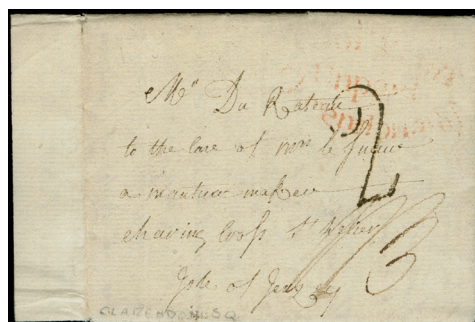 Mrs Du Ratedé
to the Care of mrs le
a mantua maker
charing Cross St Helier
Isle of Jersey
2
CLARENDON SQ